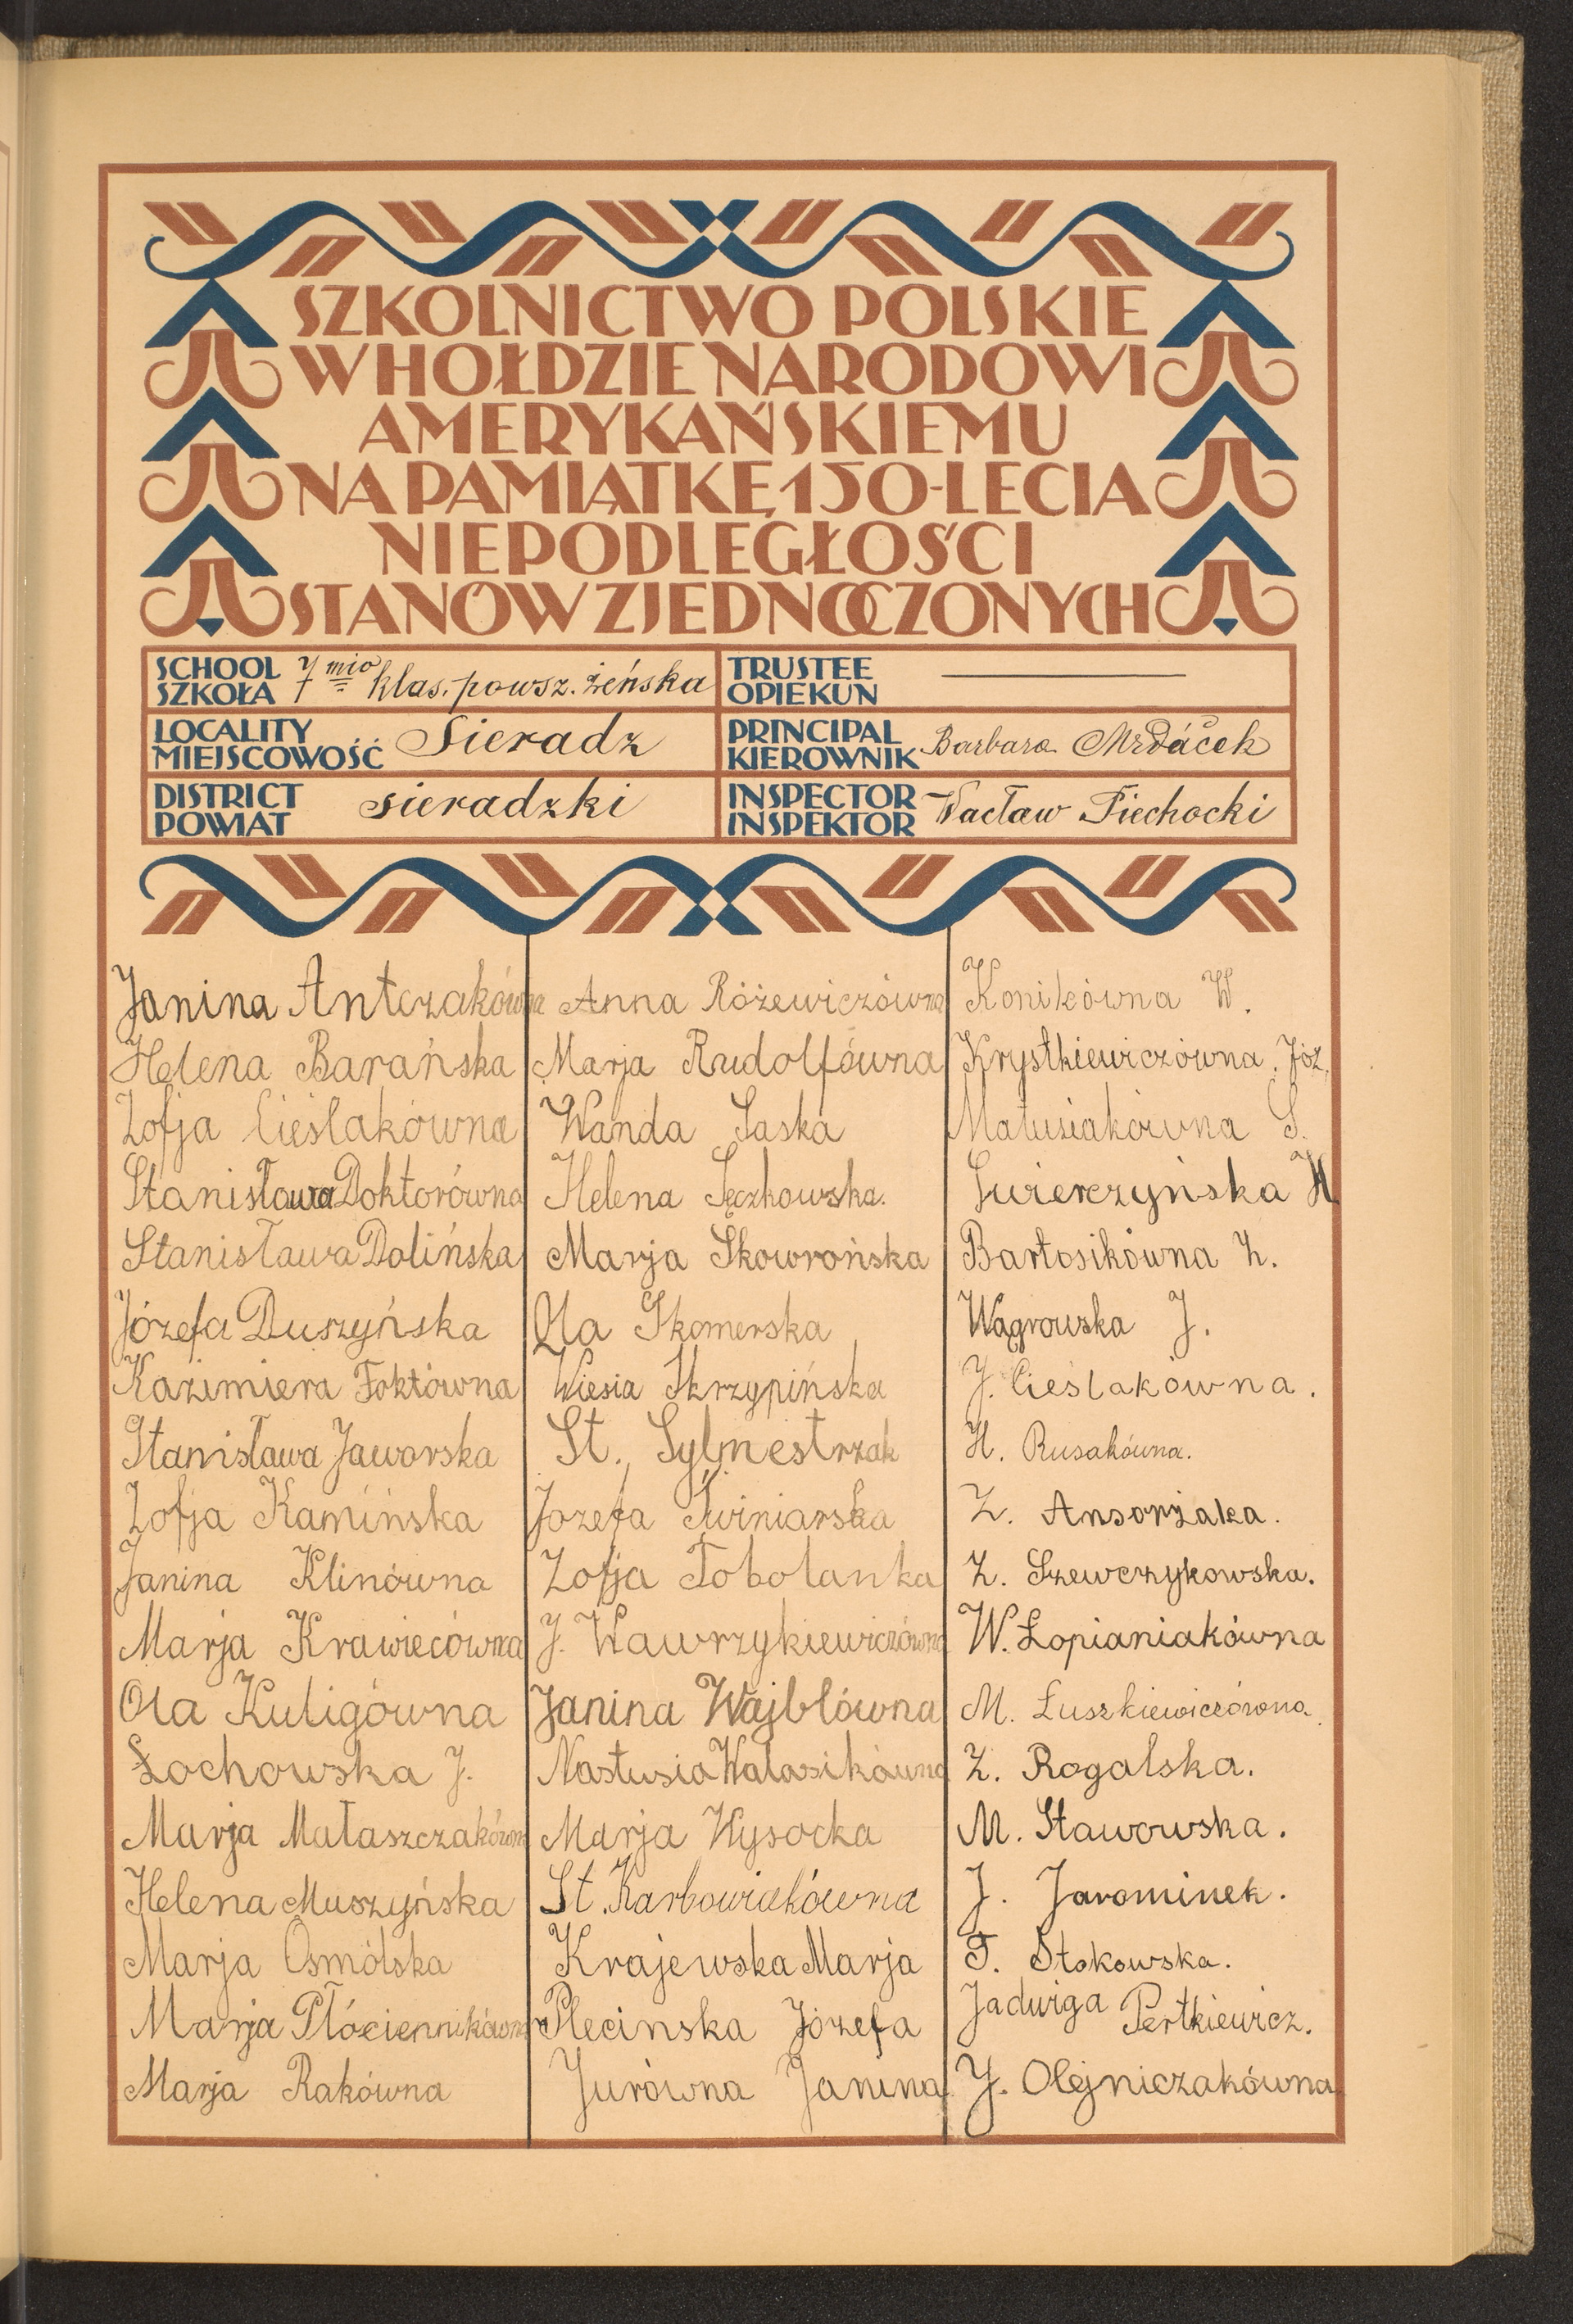 SZKOLNICTWO POLSKIE
W HOŁDZIE NARODOWI
AMERYKAŃSKIEMU
NA PAMIĄTKĘ 150-LECIA
NIEPODLEGŁOŚCI
STANÓW ZJEDNOCZONYCH
SCHOOL
SZKOŁA
7 mio klas. powsz. żeńska
TRUSTEE
OPIEKUN
LOCALITY
MIEJSCOWOŚĆ
Sieradz
PRINCIPAL
KIEROWNIK
Barbara Mrdáček
DISTRICT
POWIAT
sieradzki
INSPECTOR
INSPEKTOR
Wacław Piechocki
Janina Antczakówna
Helena Barańska
Zofja Cieślakówna
Stanisława Doktorówna
Stanisława Dolińska
Józefa Duszyńska
Kazimiera Foktówna
Stanisława Jaworska
Zofja Kamińska
Janina Klinówna
Marja Krawiecówna
Ola Kuligówna
Łochowska J.
Marja Mataszczakówna
Helena Muszyńska
Marja Osmólska
Marja Płóciennikówna
Marja Rakówna
Anna Różewiczówna
Marja Rudolfówna
Wanda Saska
Helena Sęczkowska.
Marja Skowrońska
Ola Skomerska
Wiesia Skrzypińska
St. Sylmestrzak
Jozefa Świniarska
Zofja Tobolanka
J. Wawrzykiewiczówna
Janina Wajblówna
Nastusia Walasikówna
Marja Wysocka
St. Karbowiakówna
Krajewska Marja
Plecinska Józefa
Jurówna Janina
Konikówna W.
Krystkiewiczówna Józ.
Matusiakówna S.
Świerczyńska H
Bartosikówna Z.
Wągrowska J.
J. Cieślakówna.
H. Rusakówna.
Z. Ansorżaka.
Z. Szewczykowska.
W. Łopianiakówna
M. Łuszkiewiczówna.
Z. Rogalska.
M. Stawowska.
J. Jarominek.
F. Stokowska.
Jadwiga Pertkiewicz.
J. Olejniczakówna